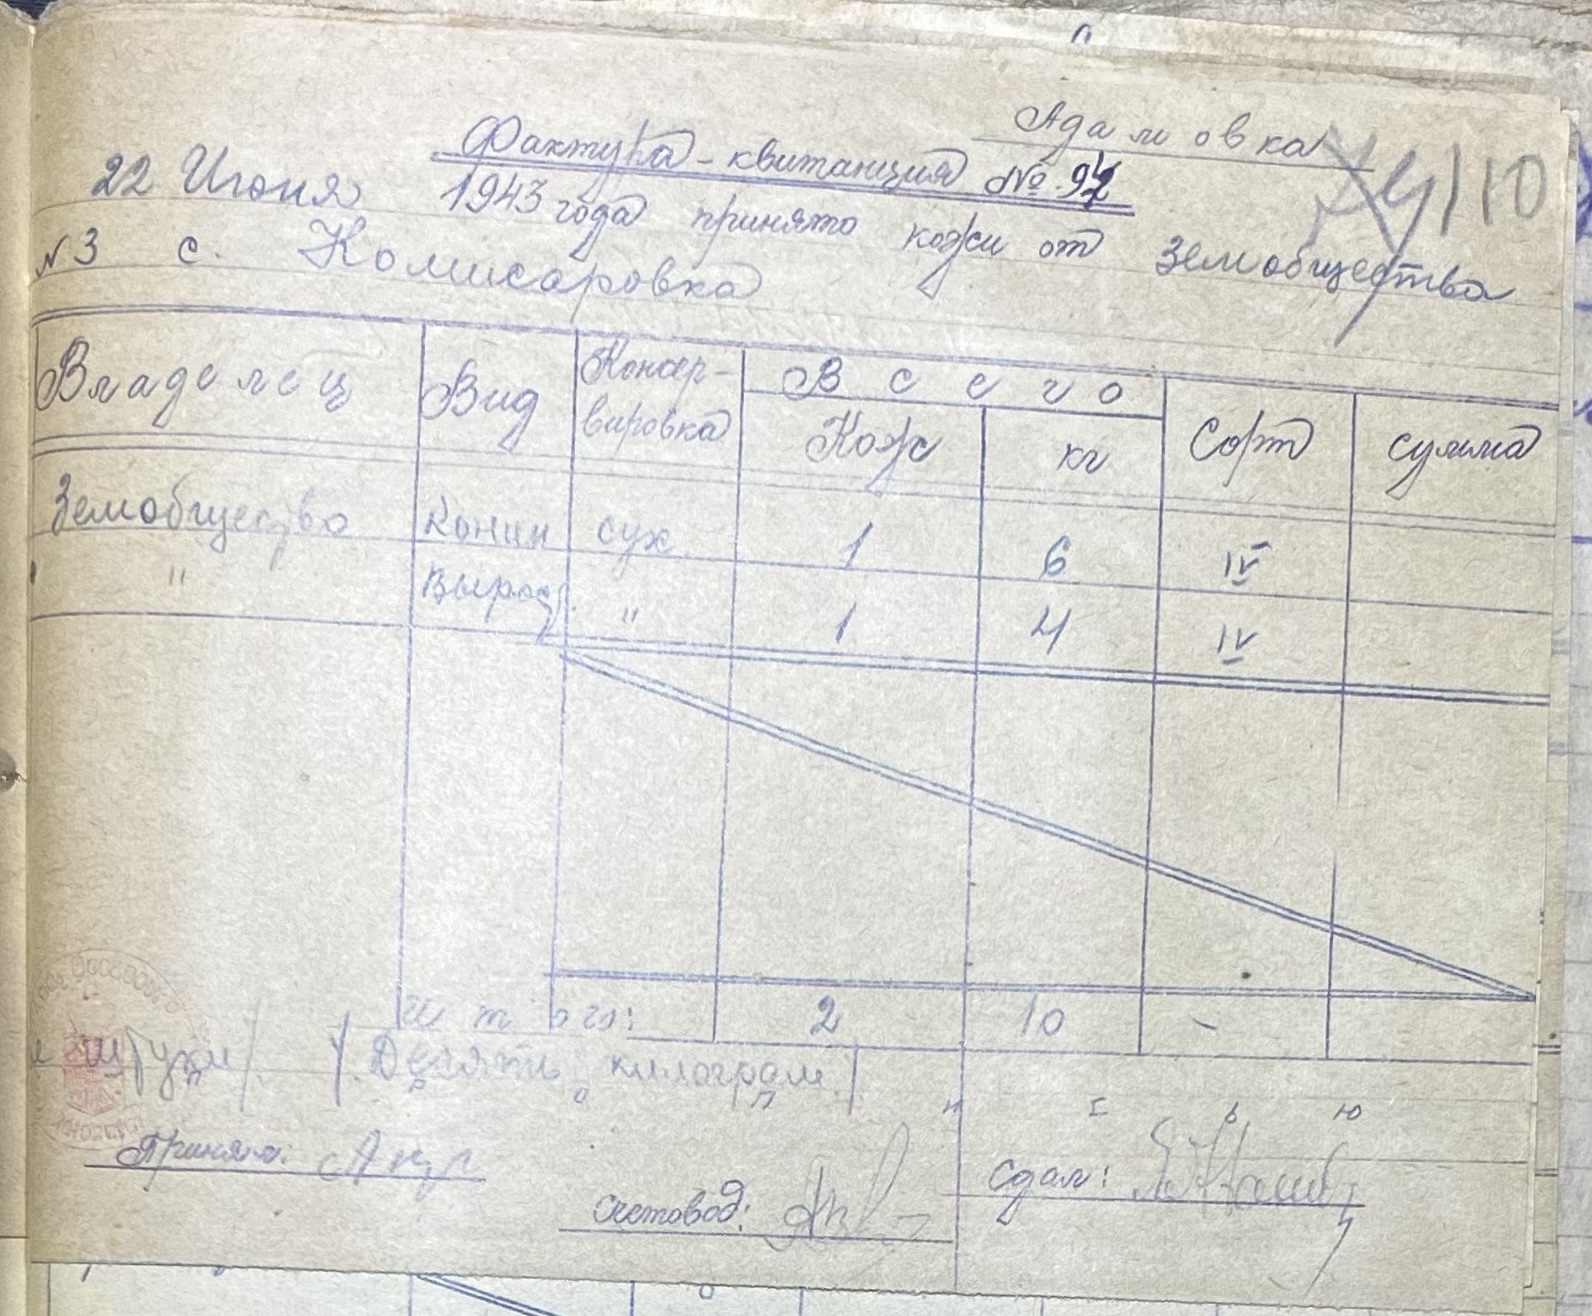 Адамовка
Фактура-квитанция № 97
110
22 Июня 1943 года принято кожи от Земобщества
№3 с. Комисаровка
Владелец Вид Консер-вировка Всего Кож кг Сорт сумма
Земобщество Конин сух 1 6 IV
" Вырос " 1 4 IV
Итого: 2 10 -
штуки/ /Десять килограм/
Принял:
Счетовод:
Сдал: